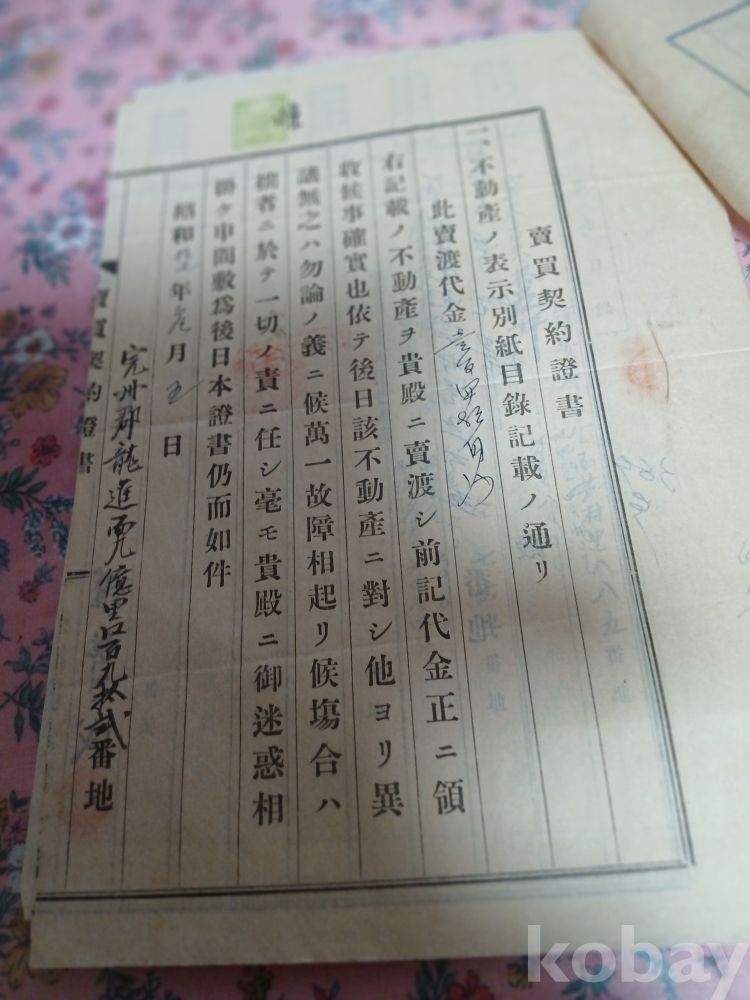 賣買契約證書
一、不動產ノ表示別紙目錄記載ノ通リ
此賣渡代金
右記載ノ不動產ヲ貴殿ニ賣渡シ前記代金正ニ領
收候事確實也依テ後日該不動產ニ對シ他ヨリ異
議無之ハ勿論ノ義ニ候萬一故障相起リ候塲合ハ
拙者ニ於テ一切ノ責ニ任シ毫モ貴殿ニ御迷惑相
掛ケ申間敷爲後日本證書仍而如件
昭和 年 月 五 日
完州郡龍進面 里 百九拾貳番地
賣買契約證書
kobay